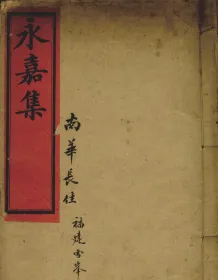 永嘉集
南華長住
福建雪峯